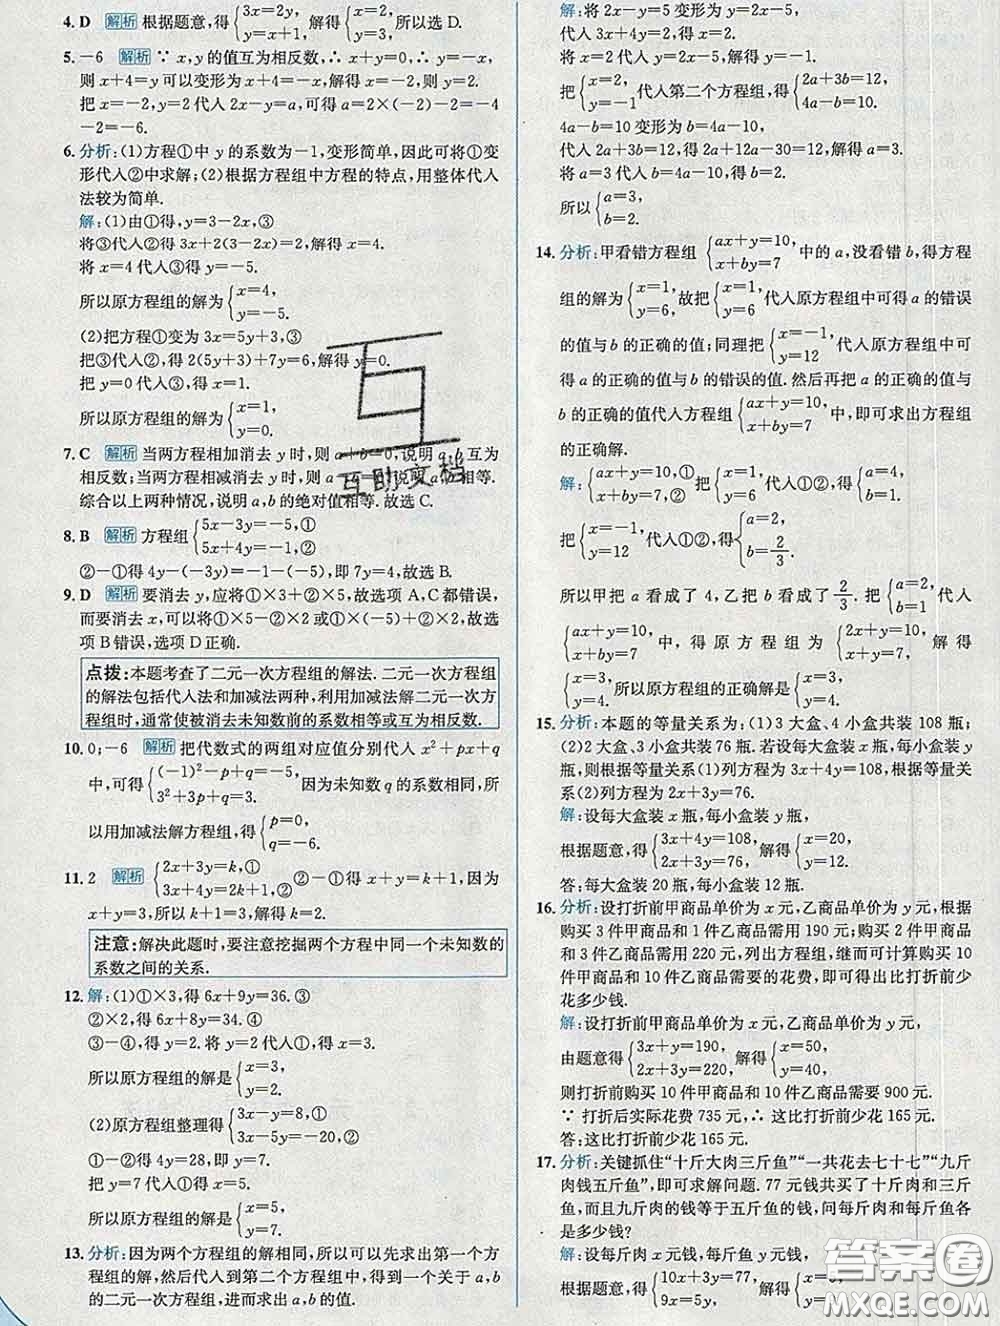 4. D 解析 根据题意,得{3x=2y, y=x+1, 解得{x=2, y=3, 所以选 D.
5. −6 解析 ∵ x,y 的值互为相反数,∴ x+y=0,∴ y=−x,
则 x+4=y 可以变形为 x+4=−x, 解得 x=−2, 则 y=2.
把 x=−2,y=2 代入 2x−y=a, 可得 a=2×(−2)−2=−4
−2=−6.
6. 分析:(1)方程①中 y 的系数为−1,变形简单,因此可将①变
形代入②中求解;(2)根据方程组中方程的特点,用整体代入
法较为简单.
解:(1)由①得,y=3−2x,③
将③代入②得 3x+2(3−2x)=2, 解得 x=4.
将 x=4 代入③得 y=−5.
所以原方程组的解为{x=4, y=−5.
(2)把方程①变为 3x=5y+3,③
把③代入②,得 2(5y+3)+7y=6,解得 y=0.
把 y=0 代入③,得 x=1.
所以原方程组的解为{x=1, y=0.
7. C 解析 当两方程相加消去 y 时,则 a+b=0,说明 a,b 互为
相反数;当两方程相减消去 y 时,则 a=b,说明 a,b 相等.
综合以上两种情况,说明 a,b 的绝对值相等.故选 C.
8. B 解析 方程组{5x−3y=−5,① 5x+4y=−1,②
②−①得 4y−(−3y)=−1−(−5),即 7y=4,故选 B.
9. D 解析 要消去 y,应将①×3+②×5,故选项 A,C 都错误,
而要消去 x,可以将①×5−②×2 或①×(−5)+②×2,故选
项 B 错误,选项 D 正确.
点拨:本题考查了二元一次方程组的解法.二元一次方程组
的解法包括代入法和加减法两种,利用加减法解二元一次方
程组时,通常使被消去未知数前的系数相等或互为相反数.
10. 0;−6 解析 把代数式的两组对应值分别代入 x²+px+q
中,可得{(−1)²−p+q=−5, 3²+3p+q=3. 因为未知数 q 的系数相同,所
以用加减法解方程组,得{p=0, q=−6.
11. 2 解析 {2x+3y=k,① 3x+4y=2k+1,② ②−①得 x+y=k+1,因为
x+y=3,所以 k+1=3,解得 k=2.
注意:解决此题时,要注意挖掘两个方程中同一个未知数的
系数之间的关系.
12. 解:(1)①×3,得 6x+9y=36.③
②×2,得 6x+8y=34.④
③−④,得 y=2. 将 y=2 代入①,得 x=3.
所以原方程组的解是{x=3, y=2.
(2)原方程组整理得{3x−y=8,① 3x−5y=−20,②
①−②得 4y=28,解得 y=7.
把 y=7 代入①,得 x=5.
所以原方程组的解是{x=5, y=7.
13. 分析:因为两个方程组的解相同,所以可以先求出第一个方
程组的解,然后代入到第二个方程组中,得到一个关于 a,b
的二元一次方程组,进而求出 a,b 的值.
解:将 2x−y=5 变形为 y=2x−5,
代入 3x+4y=2,得 x=2.
将 x=2 代入 y=2x−5,得 y=−1.
把{x=2, y=−1 代入第二个方程组,得{2a+3b=12, 4a−b=10.
4a−b=10 变形为 b=4a−10,
代入 2a+3b=12,得 2a+12a−30=12,解得 a=3.
将 a=3 代入 b=4a−10,得 b=2.
所以{a=3, b=2.
14. 分析:甲看错方程组 {ax+y=10, x+by=7 中的 a,没看错 b,得方程
组的解为{x=1, y=6, 故把{x=1, y=6 代入原方程组中可得 a 的错误
的值与 b 的正确的值;同理把{x=−1, y=12 代入原方程组中可
得 a 的正确的值与 b 的错误的值. 然后再把 a 的正确的值与
b 的正确的值代入方程组{ax+y=10, x+by=7 中,即可求出方程组
的正确解.
解:{ax+y=10,① x+by=7,② 把{x=1, y=6 代入①②,得{a=4, b=1.
把{x=−1, y=12 代入①②,得{a=2, b=2/3.
所以甲把 a 看成了 4,乙把 b 看成了 2/3. 故把{a=2, b=1 代入
{ax+y=10, x+by=7 中,得原方程组为{2x+y=10, x+y=7, 解得
{x=3, y=4. 所以原方程组的正确解是{x=3, y=4.
15. 分析:本题的等量关系为:(1)3 大盒、4 小盒共装 108 瓶;
(2)2 大盒、3 小盒共装 76 瓶. 若设每大盒装 x 瓶,每小盒装 y
瓶,则根据等量关系(1)列方程为 3x+4y=108,根据等量关
系(2)列方程为 2x+3y=76.
解:设每大盒装 x 瓶,每小盒装 y 瓶,
根据题意,得{3x+4y=108, 2x+3y=76, 解得{x=20, y=12.
答:每大盒装 20 瓶,每小盒装 12 瓶.
16. 分析:设打折前甲商品单价为 x 元,乙商品单价为 y 元,根据
购买 3 件甲商品和 1 件乙商品需用 190 元;购买 2 件甲商品
和 3 件乙商品需用 220 元,列出方程组,继而可计算购买 10
件甲商品和 10 件乙商品需要的花费,即可得出比打折前少
花多少钱.
解:设打折前甲商品单价为 x 元,乙商品单价为 y 元,
由题意得{3x+y=190, 2x+3y=220, 解得{x=50, y=40.
则打折前购买 10 件甲商品和 10 件乙商品需要 900 元.
∵ 打折后实际花费 735 元,∴ 这比打折前少花 165 元.
答:这比打折前少花 165 元.
17. 分析:关键抓住“十斤大肉三斤鱼”“一共花去七十七”“九斤
肉钱五斤鱼”,即可求解问题. 77 元钱共买了十斤肉和三斤
鱼,而且九斤肉的钱等于五斤鱼的钱,问每斤肉和每斤鱼各
是多少钱?
解:设每斤肉 x 元钱,每斤鱼 y 元钱,
根据题意,得{10x+3y=77, 9x=5y, 解得{x=
互助文档
答案圈
MXQE.COM